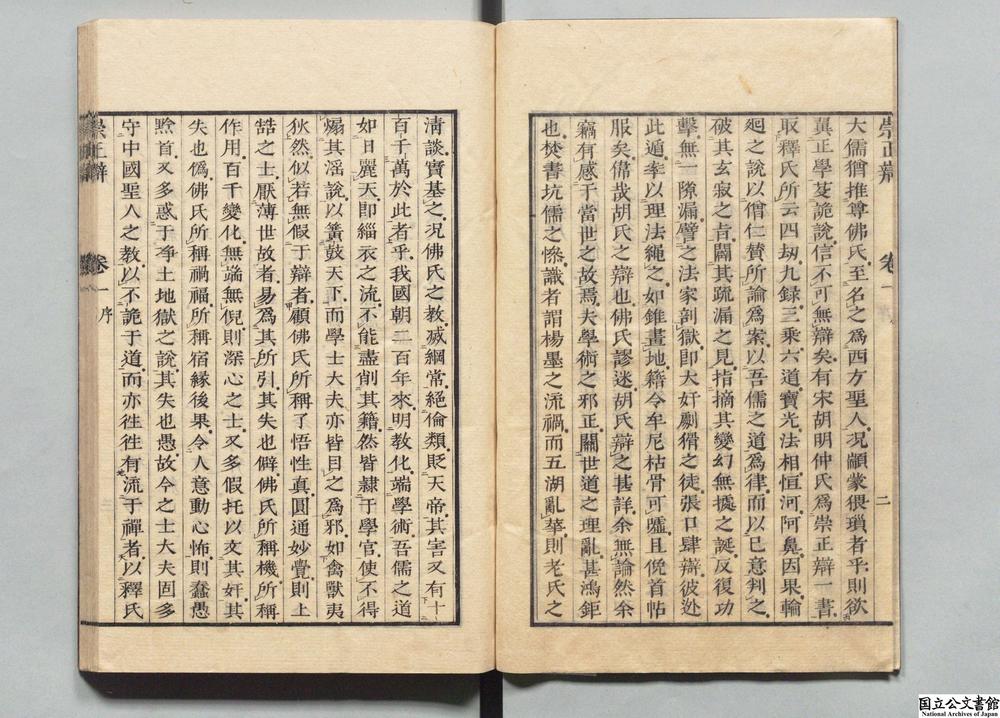 崇正辯 卷一 序 二
大儒猶推尊佛氏至名之爲西方聖人况顓蒙猥瑣者乎則欲
冀正學芟詭說信不可無辯矣有宋胡明仲氏爲崇正辯一書
取釋氏所云四刼九録三乘六道寶光法相恒河阿鼻因果輪
廻之說以僧仁贊所論爲案以吾儒之道爲律而以已意判之
破其玄寂之肯闢其疏漏之見指摘其變幻無據之誕反復功
擊無一隙漏譬之法家剖獄即大奸劇猾之徒張口肆辯彼迯
此遁率以理法繩之如錐畫地籍令牟尼枯骨可嘘且俛首帖
服矣偹哉胡氏之辯也佛氏謬迷胡氏辯之甚詳余無論然余
竊有感于當世之故焉夫學術之邪正關世道之理亂甚鴻鉅
也焚書坑儒之慘識者謂楊墨之流禍而五湖亂華則老氏之
清談實基之况佛氏之教滅綱常絕倫類貶天帝其害又有十
百千萬於此者乎我國朝二百年來明教化端學術吾儒之道
如日麗天即緇衣之流不能盡削其籍然皆隸于學官使不得
煽其淫說以簧鼓天下而學士大夫亦皆目之爲邪如禽獸夷
狄然似若無假于辯者顧佛氏所稱了悟性真圓通妙覺則上
喆之士厭薄世故者易爲其所引其失也僻佛氏所稱機所稱
作用百千變化無端無倪則深心之士又多假托以文其奸其
失也僞佛氏所稱禍福所稱宿緣後果令人意動心怖則蠢愚
黔首又多惑于净土地獄之說其失也愚故今之士大夫固多
守中國聖人之教以不詭于道而亦徃徃有流于禪者以釋氏
崇正辯 卷一 序
国立公文書館
National Archives of Japan